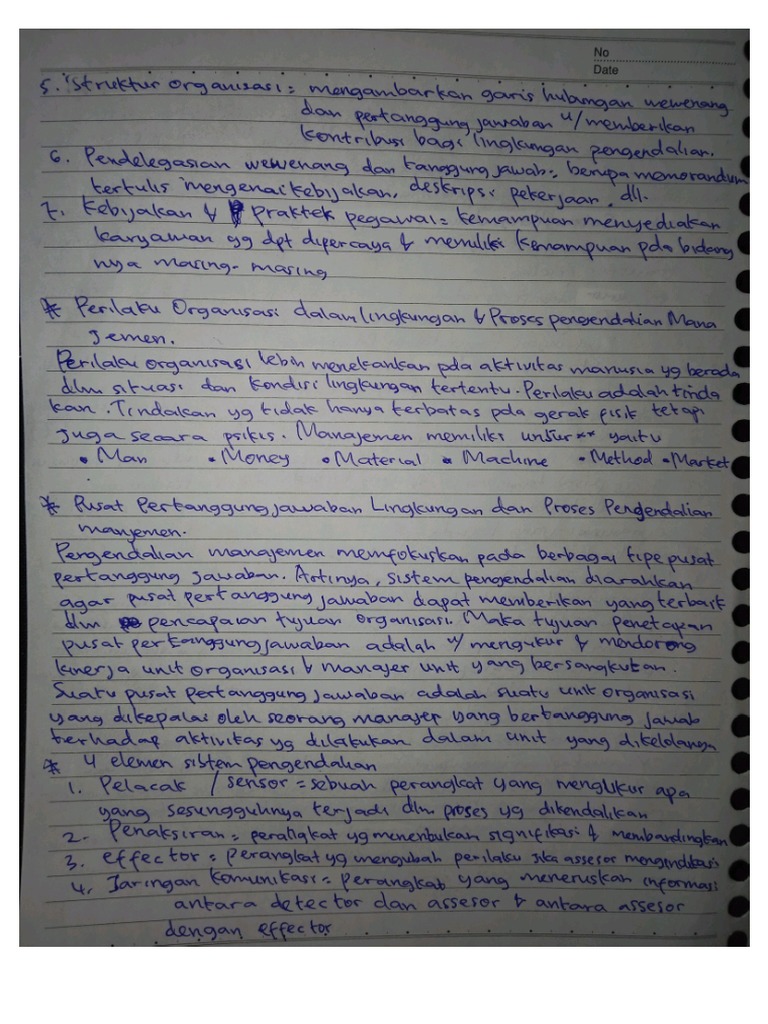 No
Date
5. Struktur organisasi = mengambarkan garis hubungan wewenang
dan pertanggung jawaban u/ memberikan
kontribusi bagi lingkungan pengendalian.
6. Pendelegasian wewenang dan tanggung jawab = berupa memorandum
tertulis mengenai kebijakan, deskripsi pekerjaan, dll.
7. Kebijakan & Praktek pegawai = kemampuan menyediakan
karyawan yg dpt dipercaya & memiliki kemampuan pda bidang
nya masing-masing
* Perilaku Organisasi dalam lingkungan & Proses pengendalian Mana
jemen.
Perilaku organisasi lebih menekankan pda aktivitas manusia yg berada
dlm situasi dan kondisi lingkungan tertentu. Perilaku adalah tinda
kan. Tindakan yg tidak hanya terbatas pda gerak fisik tetapi
juga secara psikis. Manajemen memiliki unsur** yaitu
• Man • Money • Material • Machine • Method • Market
* Pusat Pertanggung jawaban Lingkungan dan Proses Pengendalian
manjemen.
Pengendalian manajemen memfokuskan pada berbagai tipe pusat
pertanggung jawaban. Artinya, sistem pengendalian diarahkan
agar pusat pertanggung jawaban dapat memberikan yang terbaik
dlm pencapaian tujuan organisasi. Maka tujuan penetapan
pusat pertanggung jawaban adalah u/ mengukur & mendorong
kinerja unit organisasi & manajer unit yang bersangkutan.
Suatu pusat pertanggung jawaban adalah suatu unit organisasi
yang dikepalai oleh seorang manajer yang bertanggung jawab
terhadap aktivitas yg dilakukan dalam unit yang dikelolanya
* 4 elemen sistem pengendalian
1. Pelacak / sensor = sebuah perangkat yang mengukur apa
yang sesungguhnya terjadi dlm proses yg dikendalikan
2. Penaksiran = perangkat yg menentukan signifikasi & membandingkan
3. effector = Perangkat yg mengubah perilaku jika assesor mengindikasi
4. Jaringan komunikasi = perangkat yang meneruskan informasi
antara detector dan assesor & antara assesor
dengan effector